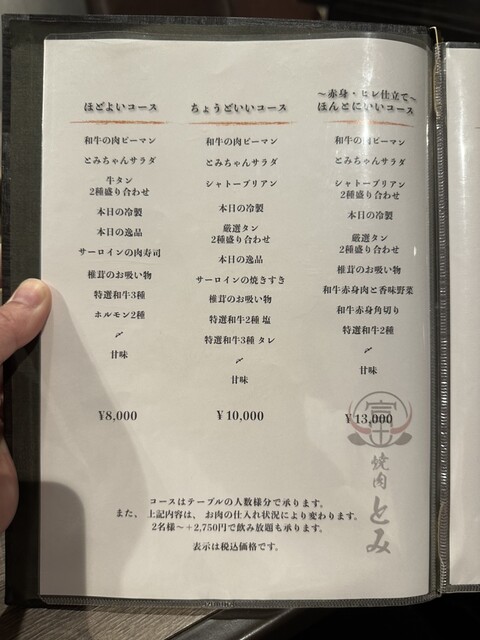 ほどよいコース
和牛の肉ピーマン
とみちゃんサラダ
牛タン
2種盛り合わせ
本日の冷製
本日の逸品
サーロインの肉寿司
椎茸のお吸い物
特選和牛3種
ホルモン2種
〆
甘味
¥8,000
ちょうどいいコース
和牛の肉ピーマン
とみちゃんサラダ
シャトーブリアン
本日の冷製
厳選タン
2種盛り合わせ
本日の逸品
サーロインの焼きすき
椎茸のお吸い物
特選和牛2種 塩
特選和牛3種 タレ
〆
甘味
¥10,000
～赤身・ヒレ仕立て～
ほんとにいいコース
和牛の肉ピーマン
とみちゃんサラダ
シャトーブリアン
2種盛り合わせ
本日の冷製
厳選タン
2種盛り合わせ
椎茸のお吸い物
和牛赤身肉と香味野菜
和牛赤身角切り
特選和牛2種
〆
甘味
¥13,000
焼肉とみ
コースはテーブルの人数様分で承ります。
また、上記内容は、お肉の仕入れ状況により変わります。
2名様～+2,750円で飲み放題も承ります。
表示は税込価格です。